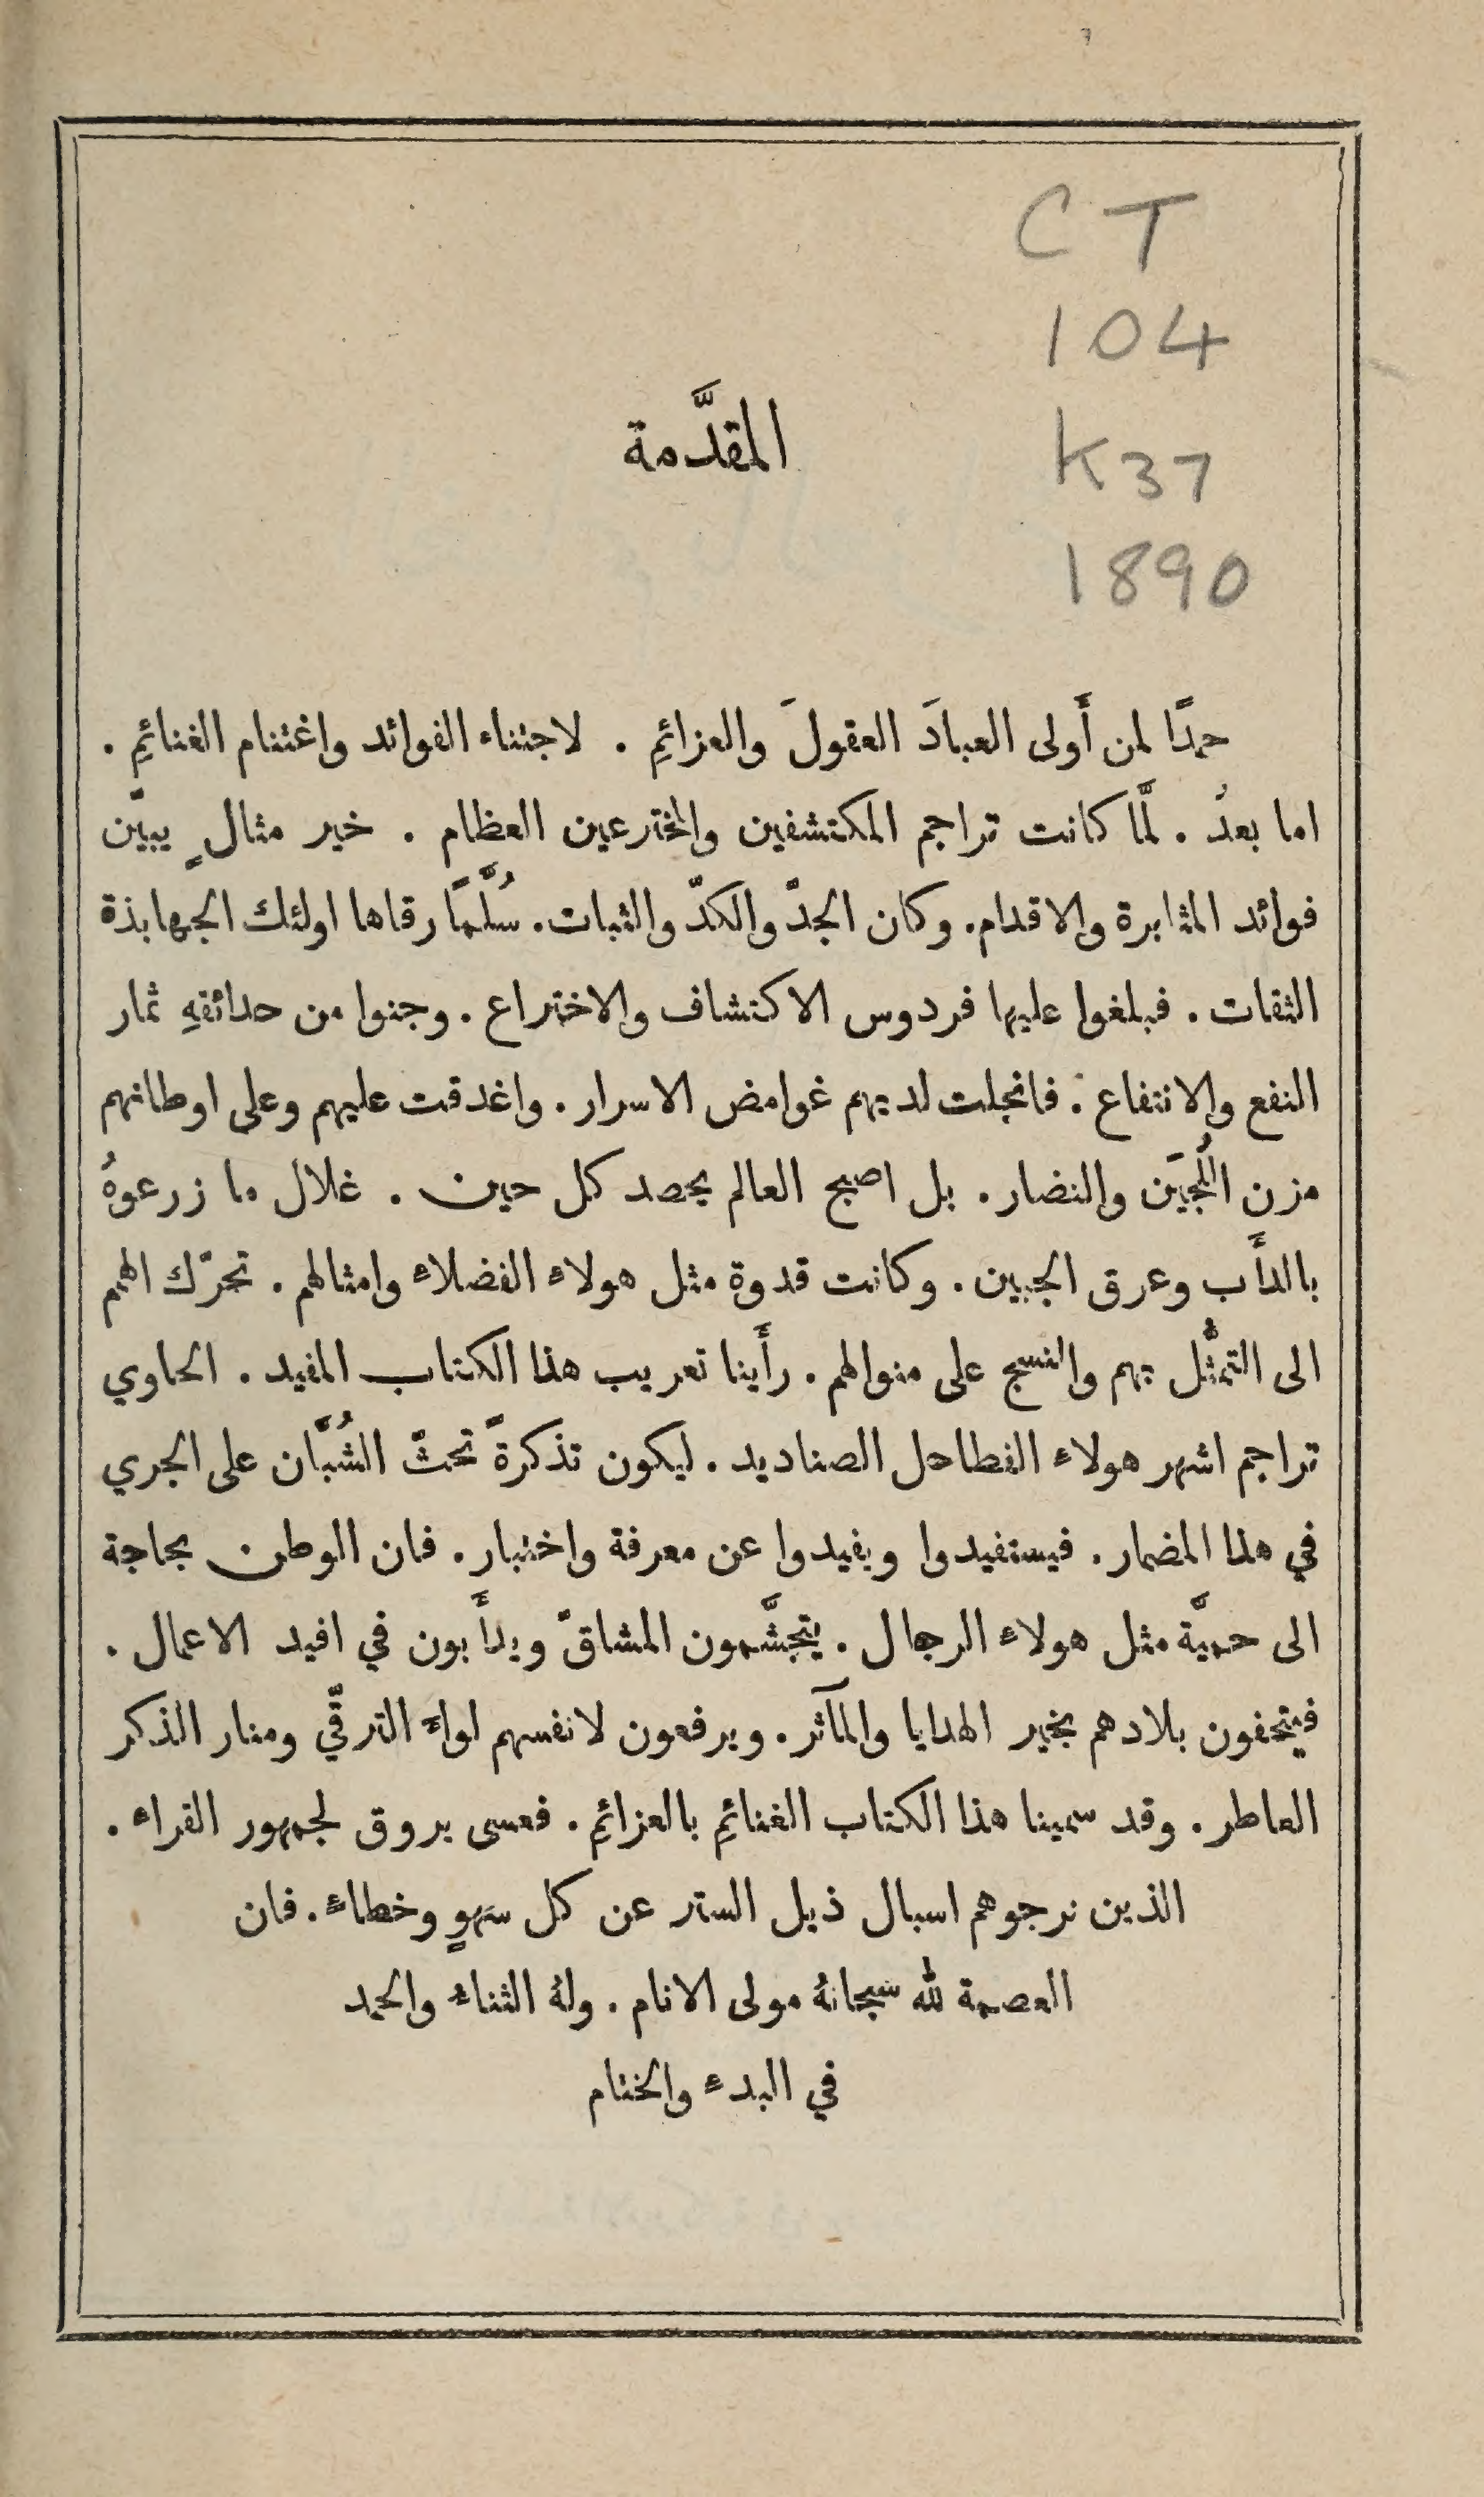 CT
104
المقدَّمة
K37
1890
حمدًا لمن أَولى العبادَ العقولَ والعزائمِ . لاجتناء الفوائد واغتنام الغنائمِ .
اما بعدُ . لمَّا كانت تراجم المكتشفين والمخترعين العظام . خير مثالٍ يبيّن
فوائد المثابرة والاقدام . وكان الجدّ والكدّ والثبات . سُلَّمًا رقاها اولئك الجهابذة
الثقات . فبلغوا عليها فردوس الاكتشاف والاختراع . وجنوا من حدائقهِ ثمار
النفع والانتفاع . فانجلت لديهم غوامض الاسرار . واغدقت عليهم وعلى اوطانهم
مزن اللُّجَين والنضار . بل اصبح العالم يحصد كل حين . غلال ما زرعوهُ
بالدأَب وعرق الجبين . وكانت قدوة مثل هولاء الفضلاء وامثالهم . تحرّك الهمم
الى التمثُّل بهم والنسج على منوالهم . رأَينا تعريب هذا الكتاب المفيد . الحاوي
تراجم اشهر هولاء الفطاحل الصناديد . ليكون تذكرةً تحثّ الشُبَّان على الجري
في هذا المضمار . فيستفيدوا ويفيدوا عن معرفة واختبار . فان الوطن بحاجة
الى حميَّة مثل هولاء الرجال . يتجشَّمون المشاقّ ويدأَبون في افيد الاعمال .
فيتحفون بلادهم بخير الهدايا والمآثر . ويرفعون لانفسهم لواءَ الترقّي ومنار الذكر
العاطر . وقد سمينا هذا الكتاب الغنائمِ بالعزائمِ . فعسى يروق لجمهور القراء .
الذين نرجوهم اسبال ذيل الستر عن كل سَهوٍ وخطاءٍ . فان
العصمة لله سبحانهُ مولى الانام . ولهُ الثناءُ والحمد
في البدءِ والختام